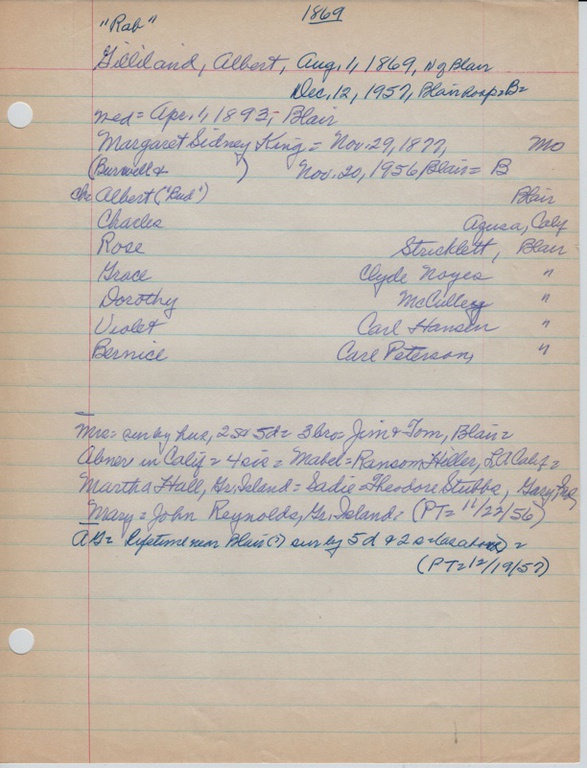 1869
"Rab"
Gilliland, Albert, Aug. 1, 1869, N of Blair
Dec. 12, 1957, Blair Hosp = B =
med = Apr. 1, 1893, Blair
Margaret Sidney King = Nov. 29, 1877, Mo
(Burwell & ) Nov. 20, 1956 Blair = B
Ch. Albert ("Bud") Blair
Charles Azusa, Calif
Rose Stricklett, Blair
Grace Clyde Noyes "
Dorothy McCulley "
Violet Carl Hansen "
Bernice Carl Peterson, "
Mrs = sur by hus, 2 s & 5 d = 3 bro = Jim & Tom, Blair =
Abner in Calif = 4 sis = Mabel = Ransom Hiller, LA Calif =
Martha Hall, Gr. Island = Sadie = Theodore Stubbs, Gary, Ind
Mary = John Reynolds, Gr. Island = (PT = 11/22/56)
AG = lifetime near Blair (?) sur by 5 d & 2 s =
(PT = 12/19/57)